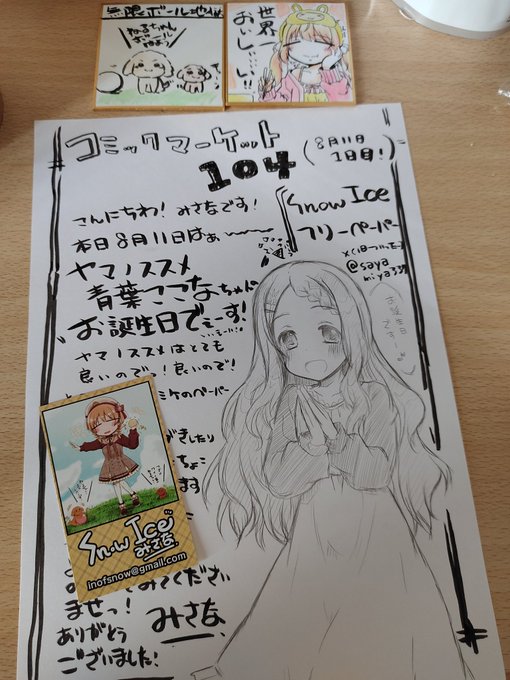 無限ボール地獄
ねるちゃん
ボール
なげよう!
世界一
おいしい!!
コミックマーケット
104
(8月11日
1日目!)
Snow Ice
フリーペーパー
@saya
miya339
こんにちわ! みさなです!
本日8月11日はぁ〜
ヤマノススメ
青葉ここなちゃん
お誕生日でぇーす!
お誕生日
ですー
ヤマノススメはとても
良いのでっ!良いので!
ケのペーパー
がきしたり
ちょこ
ます
みてください
ませっ!
みさな
ありがとう
ございました!
Snow Ice
みさな
inofsnow@gmail.com